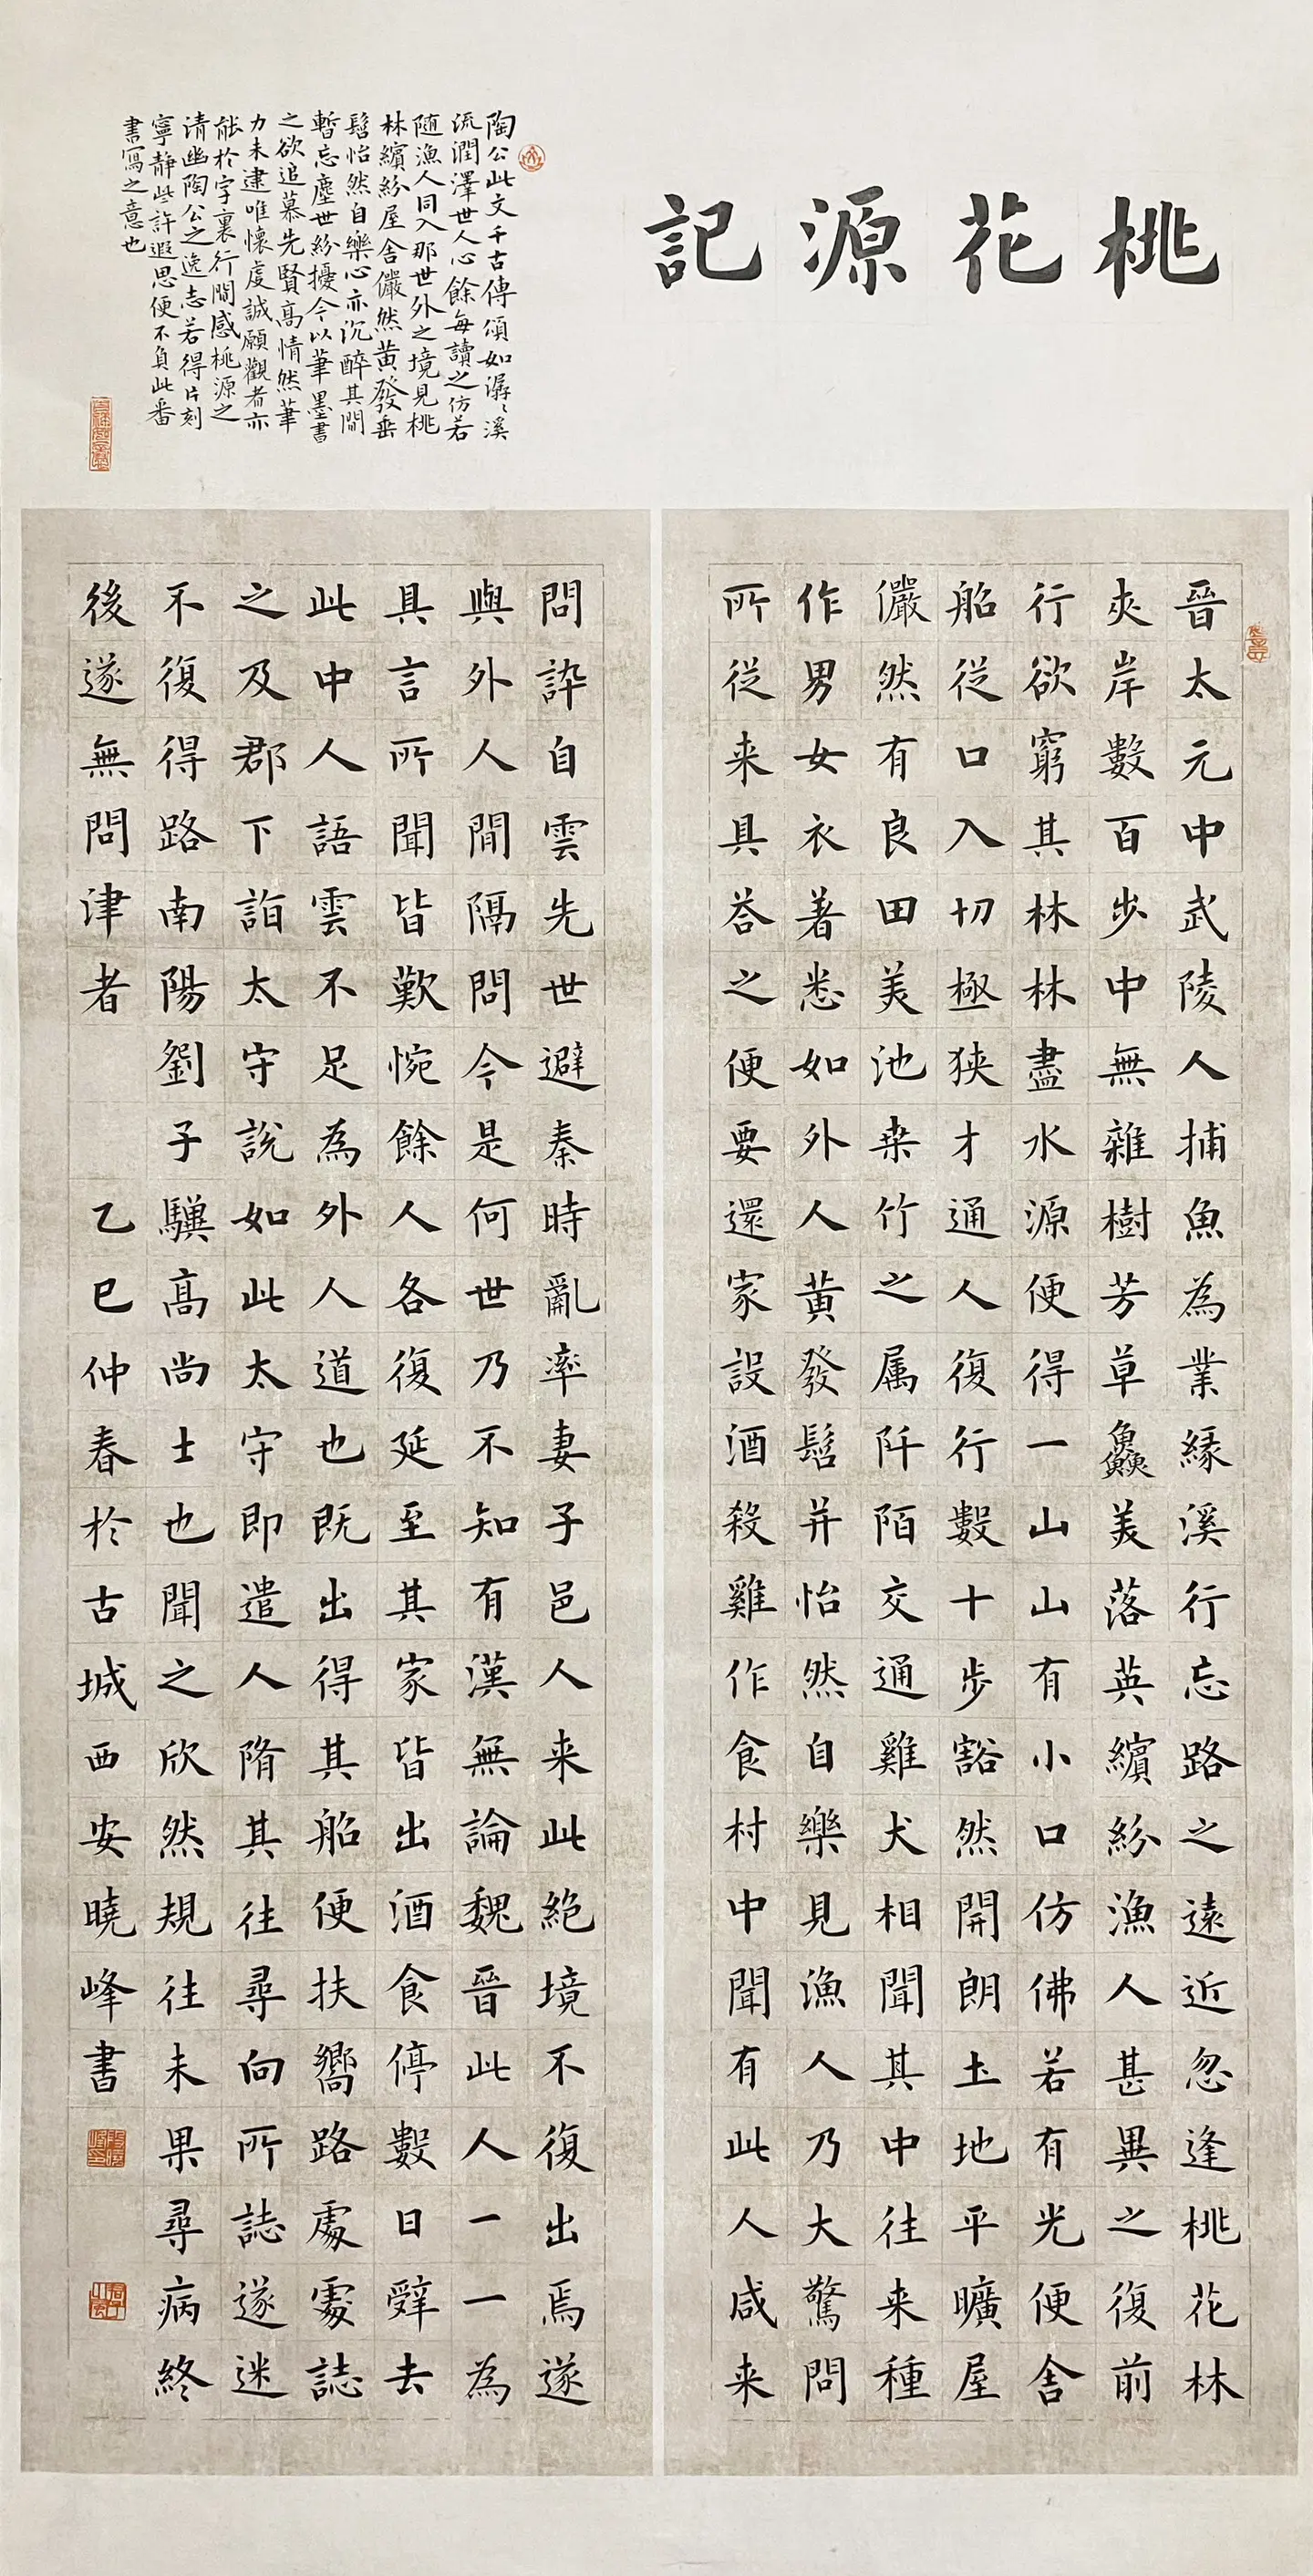 桃花源記
陶公此文千古傳頌如潺〻溪
流潤澤世人心餘每讀之仿若
随漁人同入那世外之境見桃
林繽紛屋舍儼然黄發垂
髫怡然自樂心亦沉醉其間
暫忘塵世紛擾今以筆墨書
之欲追慕先賢高情然筆
力未逮唯懷虔誠願觀者亦
能於字裏行間感桃源之
清幽陶公之逸志若得片刻
寧静些許遐思便不負此番
書寫之意也
晉太元中武陵人捕魚為業緣溪行忘路之遠近忽逢桃花林
夾岸數百步中無雜樹芳草鱻美落英繽紛漁人甚異之復前
行欲窮其林林盡水源便得一山山有小口仿佛若有光便舍
船從口入切極狹才通人復行數十步豁然開朗土地平曠屋
儼然有良田美池桒竹之属阡陌交通雞犬相聞其中往来種
作男女衣著悉如外人黄發髫并怡然自樂見漁人乃大驚問
所從来具荅之便要還家設酒殺雞作食村中聞有此人咸来
問訊自雲先世避秦時亂率妻子邑人来此絶境不復出焉遂
與外人間隔問今是何世乃不知有漢無論魏晉此人一一為
具言所聞皆歎惋餘人各復延至其家皆出酒食停數日辭去
此中人語雲不足為外人道也既出得其船便扶嚮路處處誌
之及郡下詣太守說如此太守即遣人隋其往尋向所誌遂迷
不復得路南陽劉子驥高尚士也聞之欣然規往未果尋病終
後遂無問津者 乙巳仲春於古城西安曉峰書